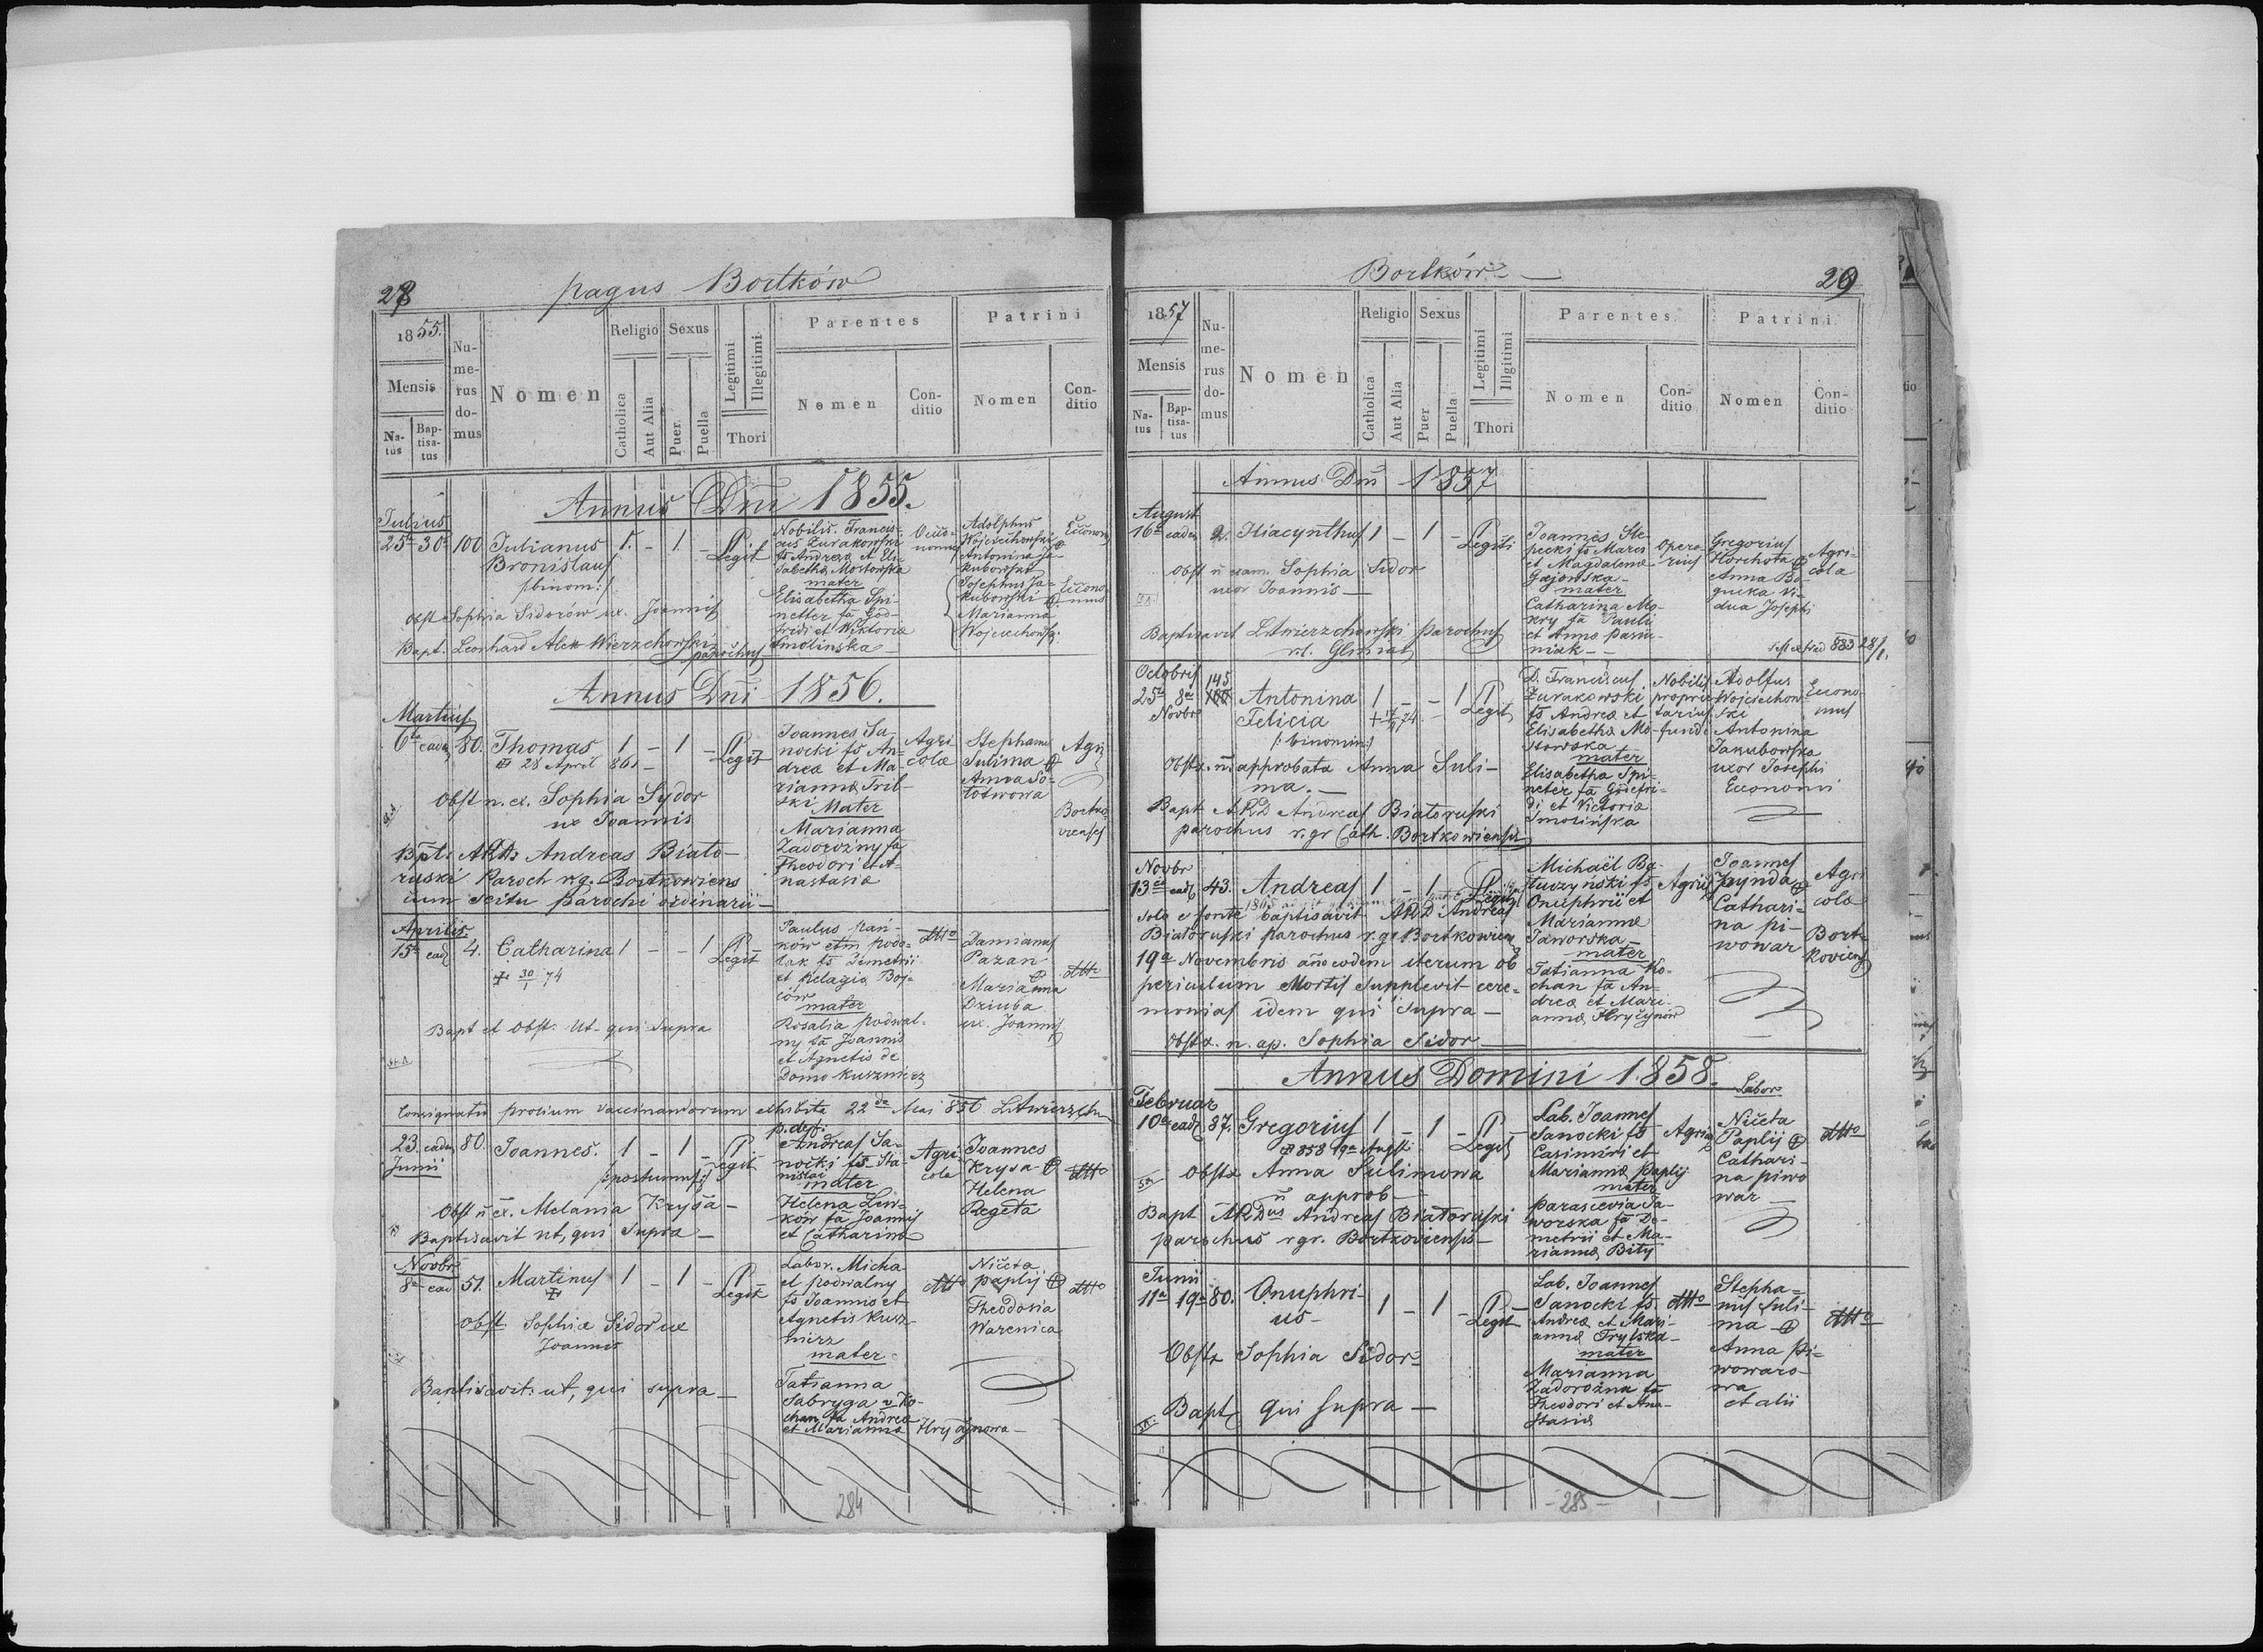 28
pagus Bortków
1855.
Mensis
Na-
tus
Bap-
tisa-
tus
Nu-
me-
rus
do-
mus
Nomen
Religio
Catholica
Aut Alia
Sexus
Puer.
Puella
Legitimi
Illegitimi
Thori
Parentes
Nomen
Con-
ditio
Patrini
Nomen
Con-
ditio
Annus Dni 1855.
Julius
25ta 30a 100 Julianus 1. - 1 - Legit
Bronislaus
/:binom:/
Nobilis Francis-
cus Żurakowski
fs Andreæ et Eli-
sabethæ Mostowska
mater
Elisabetha Spi-
netter fa God-
fridi et Wiktoria
Smolinska
Adolphus
Wojciechowski
Antonina Ja-
kubowska
Josephus Ja-
kubowski
Marianna
Wojciechowska
Obst Sophia Sidorów ux. Joannis
Bapt. Leonhard Alex Wierzchowski
parochus
Annus Dni 1856.
Martius
6ta eadem 80. Thomas 1 - 1 - Legit
28 April 861
Joannes Sa-
nocki fs An-
dreæ et Ma-
riannæ Tril-
ski
Mater
Marianna
Zadorozny fa
Theodori et A-
nastasiæ
Agri
colæ
Stephanus
Sulima
Anna So-
Agri
Obst n. ex. Sophia Sydor
ux Joannis
Bpt. ARDs Andreas Biało-
ruski Paroch r.g. Bortkowiens
cum scitu parochi ordinarii
Aprilis
15a ead 4. Catharina 1 - - 1 Legit
30/1 74
Paulus pań-
ków
fs Demetrii
et Pelagiæ Boj-
ców
mater
Rosalia podwal-
ny fa Joannis
et Agnetis de
Domo Kuszmierz
dtto
Damianus
Pazan
Marianna
Dziuba
ux. Joannis
dtto
Bapt et Obst. Ut- qui supra
Consignatio prolium vaccinandorum exhibita 22da Mai 856
23 eadem 80. Joannes. 1 - 1 - Legit
Junii
/:postumus:/
p.def:
Andreas Sa-
nocki fs Sta-
nislai
mater
Helena Liw-
ków fa Joannis
et Catharinæ
Agri-
cola
Joannes
Krysa
Helena
Regeta
dtto
Obst n ex. Melania Krysa
Baptisavit ut, qui supra
Novbr
8a ead 51. Martinus 1 - 1 - Legit
Labor. Micha-
el podwalny
fs Joannis et
Agnetis Kusz-
mierz
mater
Tatianna
Sabryga v Ko-
chan fa Andreæ
et Marianna Hryczynowa
dtto
Niceta
paplij
Theodosia
Warenica
dtto
Obst. Sophia Sidor ux
Joannis
Baptisavit: ut, qui supra
284
Bortków
29
1857
Mensis
Na-
tus
Bap-
tisa-
tus
Nu-
me-
rus
do-
mus
Nomen
Religio
Catholica
Aut Alia
Sexus
Puer
Puella
Legitimi
Illgitimi
Thori
Parentes.
Nomen
Con-
ditio
Patrini.
Nomen
Con-
ditio
Annus Dni 1857
August
16a eadem 2. Hiacynthus 1 - 1 - Legiti
Joannes Ste-
pecki fs Marci
et Magdalenæ
Gajowska
mater
Catharina Mo-
kry fa Pauli
et Annæ pasiu-
niak
opera-
rius
Gregorius
Horchota
Anna Bo-
guika Vi-
dua Josephi
Agri-
cola
Obst n exam. Sophia Sidor
uxor Joannis
Baptisavit L. Wierzchowski parochus
883 28/1.
Octobris
25ta 8a 145
Novbr
Antonina 1 - - 1 Legit
Felicia
/:binomin:/
D. Franciscus
Żurakowski
fs Andreæ et
Elisabethæ Mo-
stowska
mater
Elisabetha Spi-
neter fa Godefri-
di et Victoria
Smolińska
Nobilis
proprie-
tarius
fundi
Adolfus
Wojciechow-
ski
Antonina
Jakubowska
uxor Josephi
Economi
Econo-
mus
Obstx. n approbata Anna Suli-
ma.
Bapt ARD Andreas Białoruski
parochus r.gr Cath. Bortkowiensis
Novbr
13a ead 43. Andreas 1 - 1 Legit
Michaël Ba-
tuczyński fs
Onuphrii et
Mariannæ
Jaworska
mater
Tatianna Ko-
chan fa An-
dreæ et Mari-
annæ Hryczynów
Agric
Joannes
Pynda
Cathari-
na pi-
wowar
Agri
cola
Bort-
koviens
Solo e fonte baptisavit ARD. Andreas
Białoruski parochus r.gr Bortkowiens
19a Novembris año eodem iterum ob
periculum Mortis Supplevit cere-
monias idem qui supra
Obstx. n. ap. Sophia Sidor
Annus Domini 1858.
Februar
10a ead 37. Gregorius 1 - 1 - Legit
858 19a Augsti
Lab. Joannes
Sanocki fs
Casimiri et
Mariannæ paplij
mater
Parascevia Ja-
worska fa De-
metrii et Ma-
riannæ Bity
Agric
Labor
Niceta
Paplij
Cathari-
na piwo
war
dtto
Obstx Anna Sulimowa
n approb
Bapt ARDus Andreas Białoruski
parochus rgr. Bortkoviensis
Junii
11a 19a 80. Onuphri- 1 - 1 - Legit
us
Lab. Joannes
Sanocki fs
Andreæ et Mari-
annæ Trylska
mater
Marianna
Zadorożna fa
Theodori et Ana-
stasiæ
dtto
Stepha-
nus Suli-
ma
Anna Pi-
wowaro-
wa
et alii
dtto
Obstx Sophia Sidor
Bapt qui supra
- 285 -